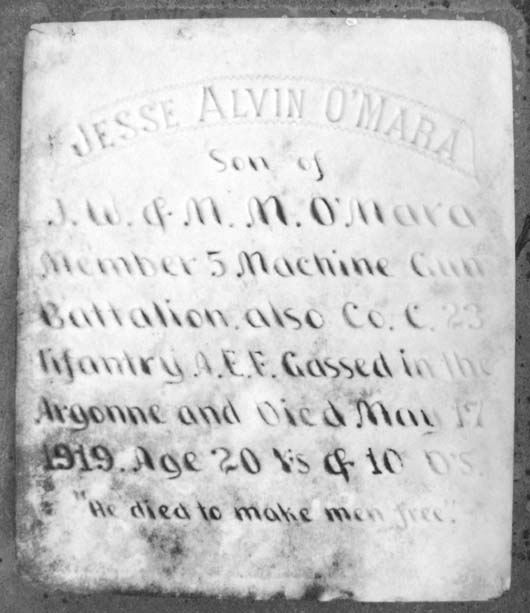 JESSE ALVIN O'MARA
Son of
J. W. & M. M. O'Mara
Member 5 Machine Gun
Battalion. also Co. C. 23
Infantry A.E.F. Gassed in the
Argonne and Died May 17
1919. Age 20 Ys & 10 D's.
"He died to make men free".